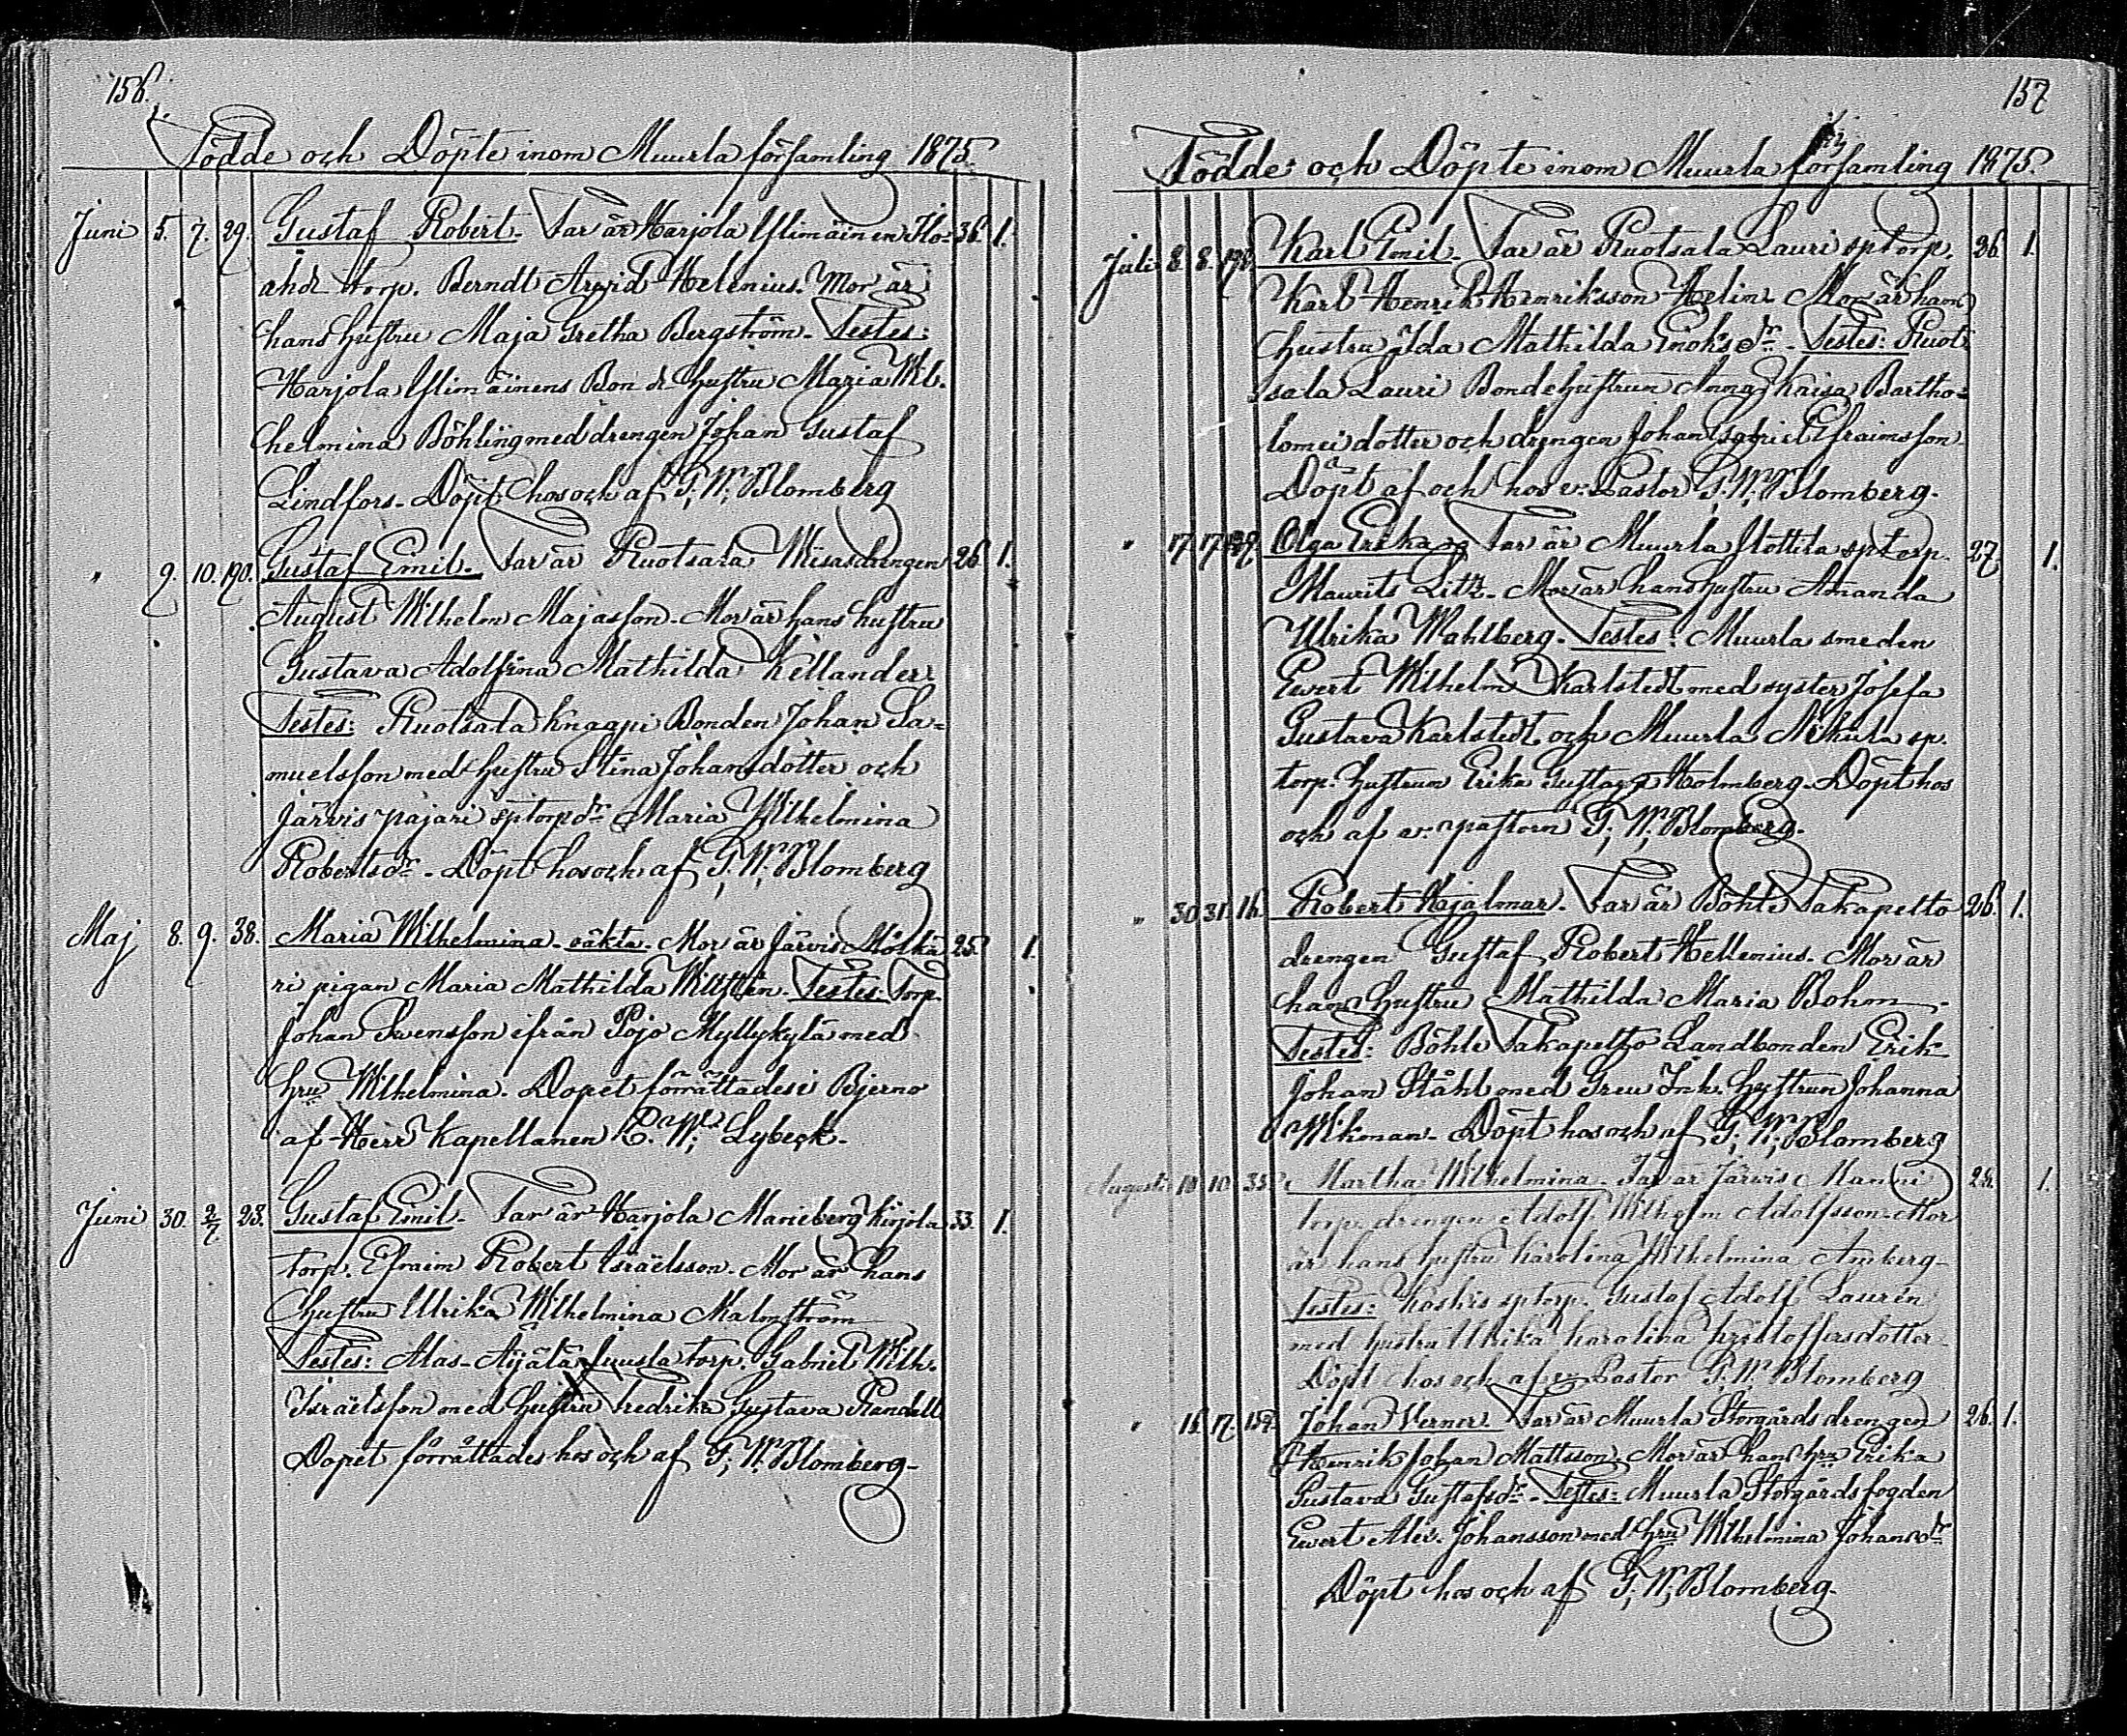 156.
Födde och Döpte inom Muurla församling 1875.
Juni 5. 7. 29. Gustaf Robert. Far är Harjola Ylimäinen Ko- 36. 1.
ahde torp. Berndt Arvid Helenius. Mor är
hans hustru Maja Gretha Bergström. Testes:
Harjola Ylimäinens Bondehustru Maria Wil-
helmina Böhling med drengen Johan Gustaf
Lindfors. Döpt hos och af G. W. Blomberg
" 9. 10. 190. Gustaf Emil. Far är Ruotsala Wisas drengen 26. 1.
August Wilhelm Majasson. Mor är hans hustru
Gustava Adolfina Mathilda Kellander.
Testes: Ruotsala Knaapi Bonden Johan Sa=
muelsson med hustru Stina Johansdotter och
Järvis pajari sptorpdr Maria Wilhelmina
Robertsdr. Döpt hos och af G. W. Blomberg
Maj 8. 9. 38. Maria Wilhelmina oäkta. Mor är Järvis 25. 1.
ri pigan Maria Mathilda Testes: Torp.
Johan Svensson ifrån Pojo Myllykylä med
hru Wilhelmina. Dopet förrättades i Bjerno
af Herr Kapellanen W. Lybeck.
Juni 30. 2/7 23. Gustaf Emil. Far är Harjola Marieberg Kirjola 33. 1.
torp. Efraim Robert Israelsson. Mor är hans
hustru Ulrika Wilhelmina Malmström
Testes: Alas-Äijälä Juusla torp. Gabriel Wilh.
Israelsson med hustru Fredrika Gustava Randell
Dopet förrättades hos och af G. W. Blomberg.
157
Födde och Döpte inom Muurla församling 1875.
Juli 8. 8. Karl Emil. Far är Ruotsala Lauri sptorp. 26 1.
Karl Henrik Henriksson Helin. Mor är hans
hustru Ida Mathilda Enoksdr. Testes: Ruot-
sala Lauri Bondehustrun Anna Kaisa Bartho=
lomei dotter och drengen Johan Gabriel Efraimsson.
Döpt af och hos v. Pastor G. W. Blomberg.
" 17 17 Olga Erika. Far är Muurla Nottila sptorp. 27 1.
Maurits Litz. Mor är hans hustru Amanda
Ulrika Wahlberg. Testes: Muurla smeden
Evert Wilhelm Karlstedt med syster Josefa
Gustava Karlstedt och Muurla Nikula sp.
torp. hustrun Erika Gustava Holmberg. Döpt hos
och af v. pastorn G. W. Blomberg.
" 30 31. 16. Robert Hjalmar. Far är Böhle Takapelto 26. 1.
drengen Gustaf Robert Hellenius. Mor är
hans hustru Mathilda Maria Bohm.
Testes: Böhle Takapelto Landbonden Erik
Johan Ståhl med Greu Inh. hustrun Johanna
Wikman. Döpt hos och af G. W. Blomberg
Augusti 10 10 35. Martha Wilhelmina. Far är Järvis Manni 24. 1.
torp. drengen Adolf Wilhelm Adolfsson. Mor
är hans hustru Karolina Wilhelmina Amberg.
Testes: Koskis sptorp. Gustaf Adolf Laurén
med hustru Ulrika Karolina Kristoffersdotter.
Döpt hos och af v. Pastor G. W. Blomberg
" 15. 17. 159. Johan Verner. Far är Muurla Storgårds drengen 26. 1.
Henrik Johan Mattsson. Mor är hans hru Erika
Gustava Gustafsdr. Testes: Muurla Storgårds fogden
Evert Alex. Johansson med hru Wilhelmina Johansdr
Döpt hos och af G. W. Blomberg.